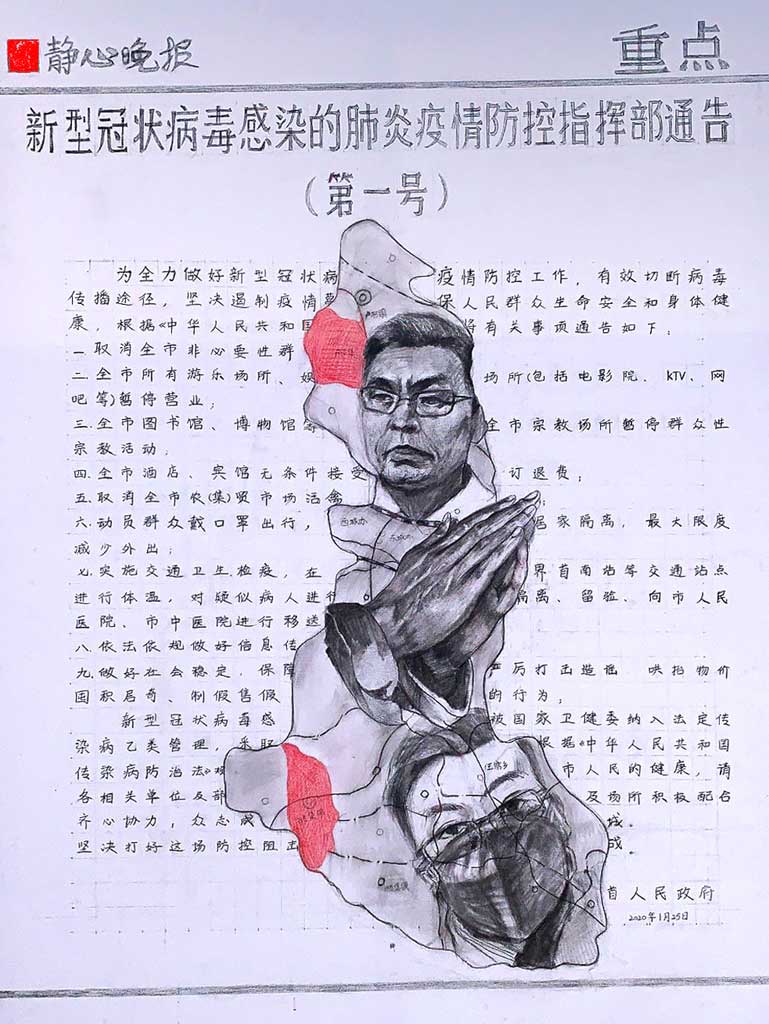 静心晚报
重点
新型冠状病毒感染的肺炎疫情防控指挥部通告
(第一号)
为全力做好新型冠状病 疫情防控工作，有效切断病毒
传播途径，坚决遏制疫情蔓 保人民群众生命安全和身体健
康，根据《中华人民共和国 将有关事项通告如下：
一.取消全市非必要性群
二.全市所有游乐场所、娱 场所(包括电影院、KTV、网
吧等)暂停营业；
三.全市图书馆、博物馆等 全市宗教场所暂停群众性
宗教活动；
四.全市酒店、宾馆无条件接受 订退费；
五.取消全市农(集)贸市场活禽
六.动员群众戴口罩出行， 居家隔离，最大限度
减少外出；
七.实施交通卫生检疫，在 界首南站等交通站点
进行体温，对疑似病人进行 隔离、留验、向市人民
医院、市中医院进行移送
八.依法依规做好信息
九.做好社会稳定，保障 严厉打击造谣 哄抬物价
囤积居奇、制假售假 的行为；
新型冠状病毒感 被国家卫健委纳入法定传
染病乙类管理，采取 根据《中华人民共和国
传染病防治法》 市人民的健康，请
各相关单位及部 及场所积极配合
齐心协力，众志成 城。
坚决打好这场防控阻击
西城办
东城办
首人民政府
2020年1月25日